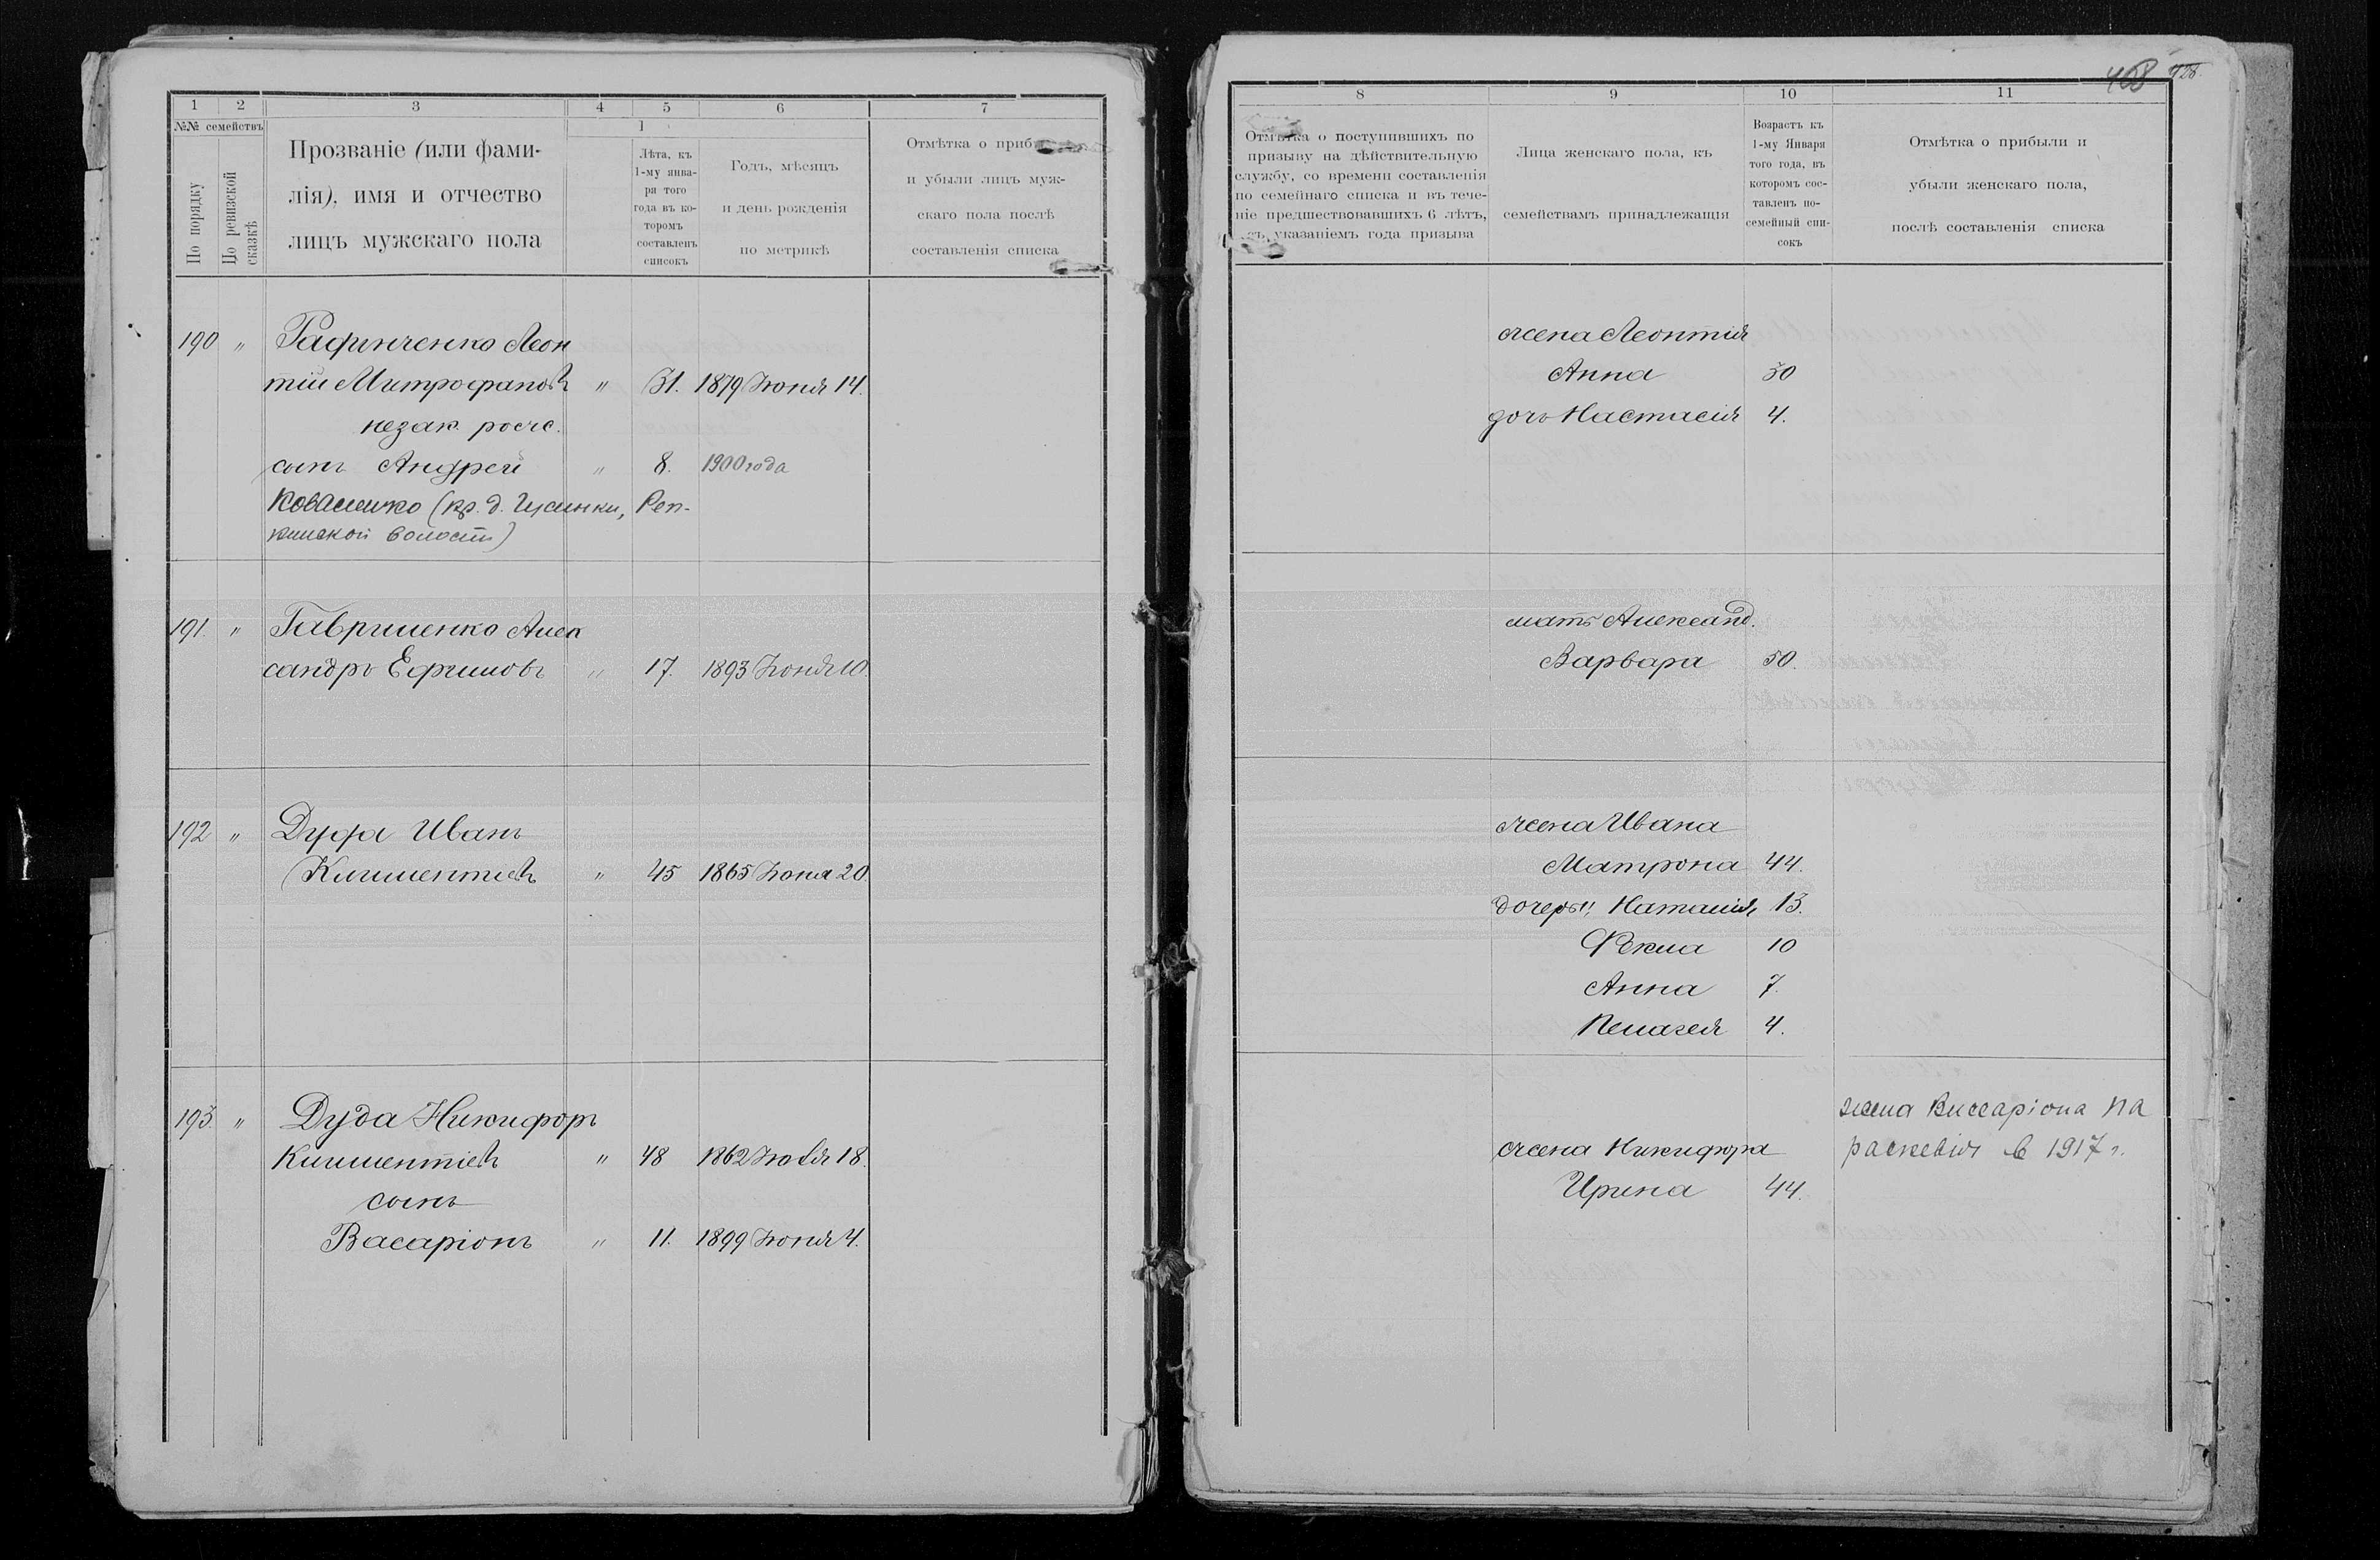 1 2 3 4 5 6 7
№№ семействъ
По порядку
По ревизской сказкѣ
Прозваніе (или фами-
лія), имя и отчество
лицъ мужскаго пола
1
Лѣта, къ
1-му янва-
ря того
года въ ко-
торомъ
составленъ
списокъ
Годъ, мѣсяцъ
и день рожденія
по метрикѣ
Отмѣтка о приб
и убыли лицъ муж-
скаго пола послѣ
составленія списка
190 " Рафинченко Леон
тій Митрофановъ " 31. 1879 Іюня 14.
незак. росс.
сынъ Андрей " 8. 1900 года
Коваленко (кр. д. Реп-
кинской волости)
191. " Гавриленко Алек
сандръ Ефимовъ " 17. 1893 Іюня 10.
192 " Дуда Иванъ
Климентіевъ " 45 1865 Іюня 20.
193. " Дуда Никифоръ
Климентіевъ " 48 1862 Іюля 18.
сынъ
Васаріонъ " 11. 1899 Іюня 4.
408 428.
8 9 10 11
Отмѣтка о поступившихъ по
призыву на дѣйствительную
службу, со времени составленія
по семейнаго списка и въ тече-
ніе предшествовавшихъ 6 лѣтъ,
съ указаніемъ года призыва
Лица женскаго пола, къ
семействамъ принадлежащія
Возрастъ къ
1-му Января
того года, въ
которомъ сос-
тавленъ по-
семейный спи-
сокъ
Отмѣтка о прибыли и
убыли женскаго пола,
послѣ составленія списка
жена Леонтія
Анна 30
дочь Настасія 4.
мать Александ.
Варвара 50.
жена Ивана
Матрона 44.
дочеры, Наталія, 13.
Фекла 10
Анна 7.
Пелагея 4.
жена Виссаріона Па
раскевія в 1917 г.
жена Никифора
Ирина 44.